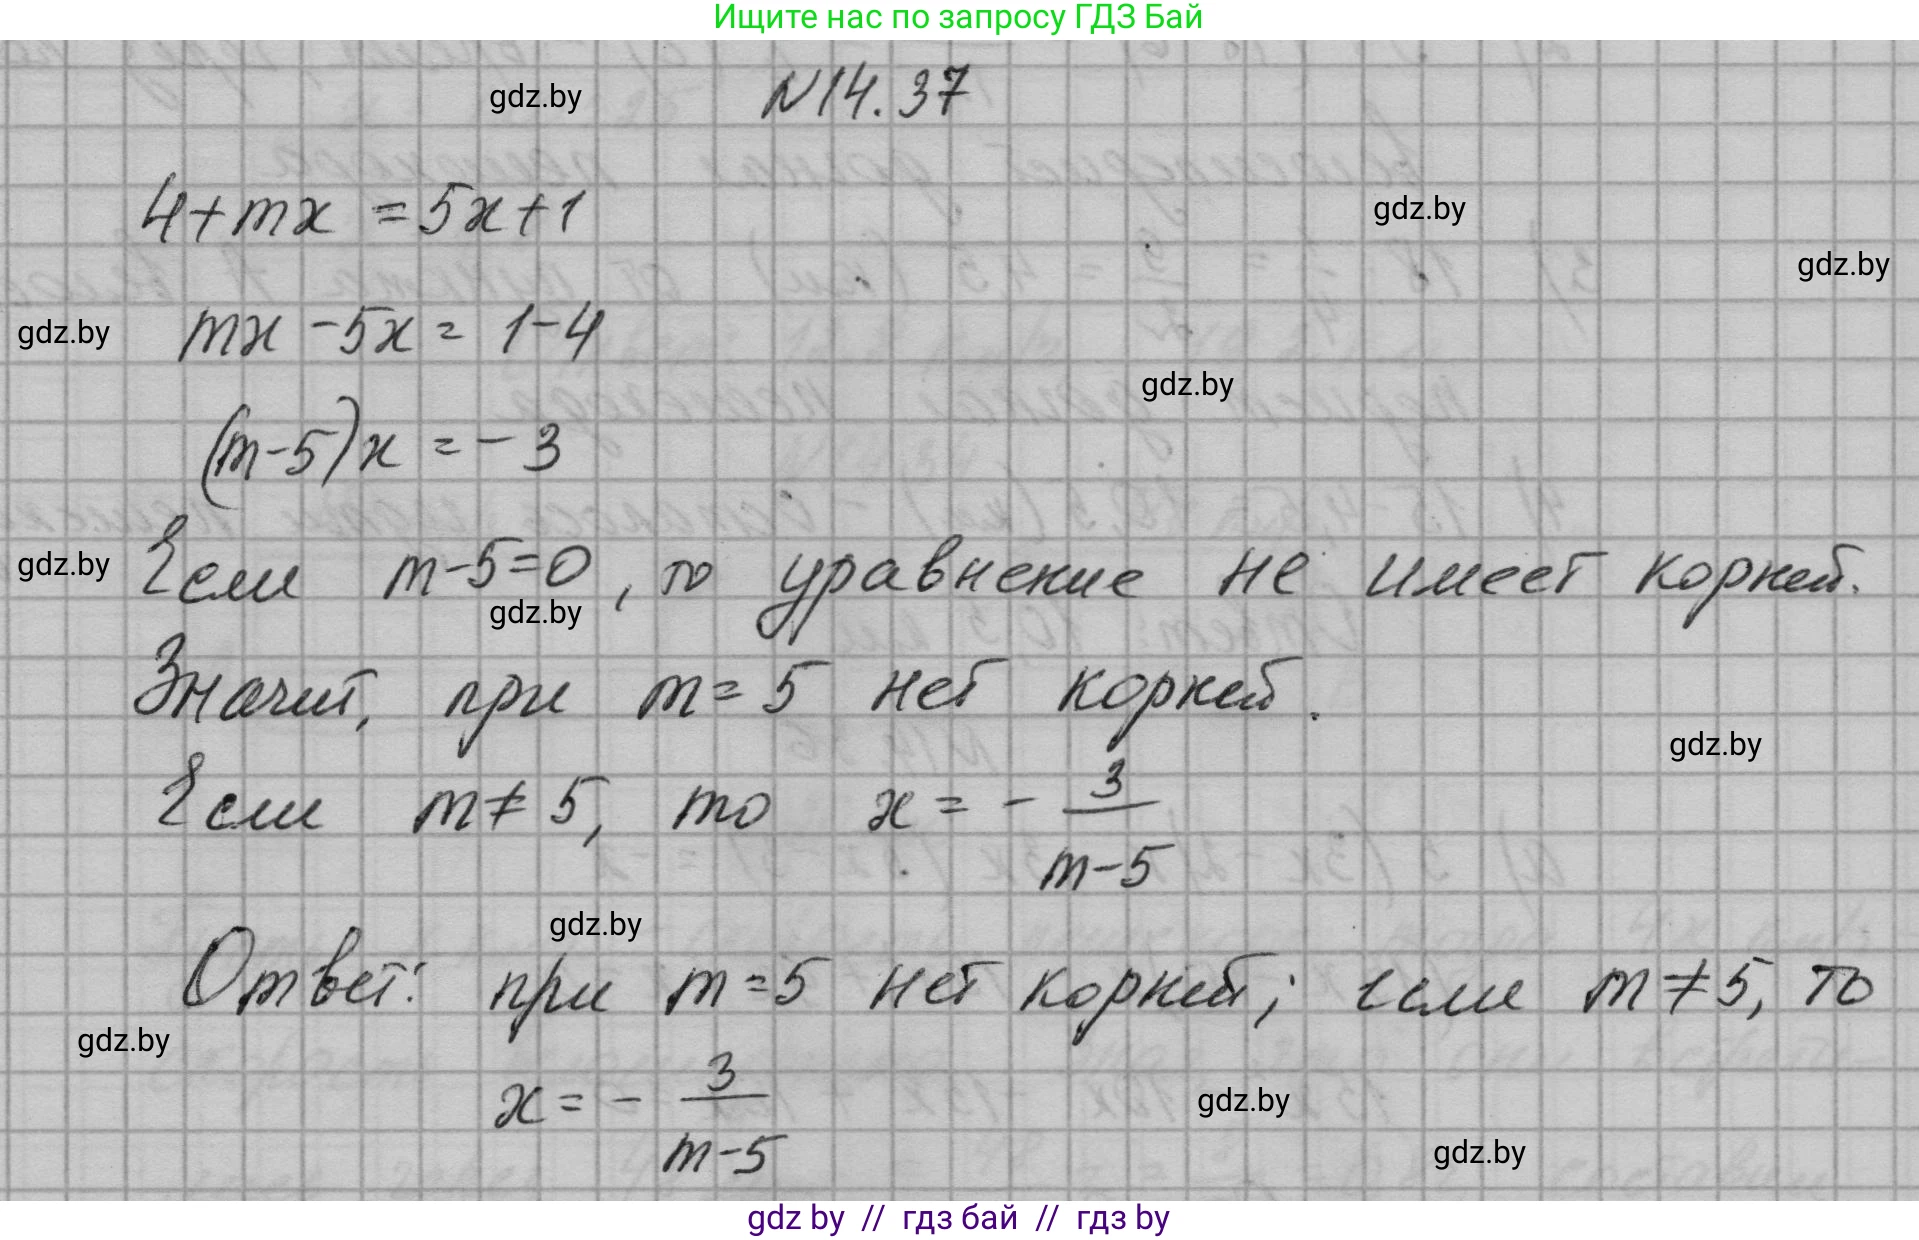 Ищите нас по запросу ГДЗ Бай
gdz.by
N14.37
4+mx = 5x+1
gdz.by
gdz.by
mx - 5x = 1-4
gdz.by
gdz.by
(m-5)x = -3
Если m-5=0, то уравнение не имеет корней.
gdz.by
gdz.by
Значит, при m=5 нет корней.
gdz.by
Если m≠5, то x = - 3/(m-5)
gdz.by
Ответ: при m=5 нет корней; если m≠5, то
gdz.by
x = - 3/(m-5)
gdz.by
gdz.by
gdz by // гдз бай // гдз by